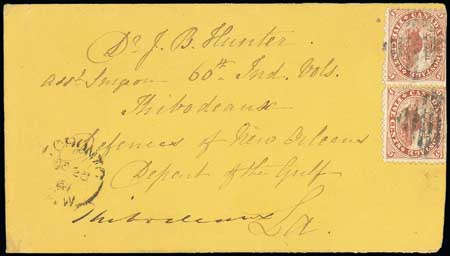 Dr J. B. Hunter.
asst Surgeon 60th Ind. Vols.
Thibodeaux
Defences of New Orleans
Depart of the Gulf
Thibodeaux La.
CANADA
FIVE CENTS
CANADA
FIVE CENTS